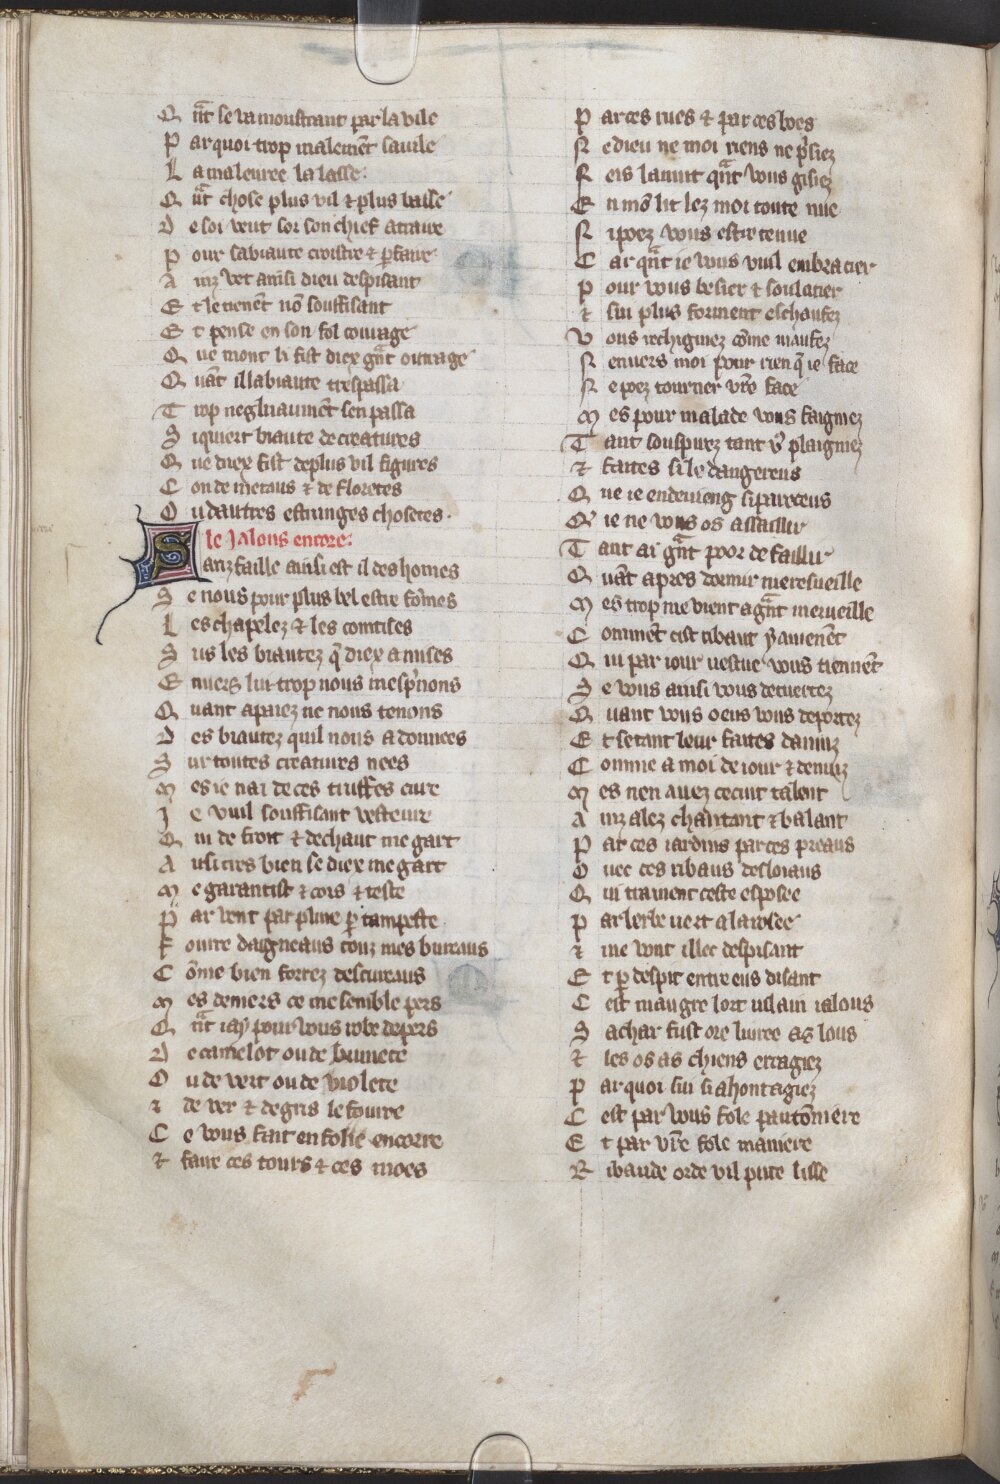 Q nͣt se va moustrant par la vile
P ar quoi trop malemēt sauile
L a maleuree la lasse
Q nͣt chose plus vil ⁊ plus basse
D e soi veut sor son chief atraire
P our sa biaute croistre ⁊ ꝑfaire
A inz vet ainsi dieu despisant
E t le tienēt nō souffisant
E t pense en son fol courage
Q ue mont li fist diex gͣnt outrage
Q uāt il la biaute trespassa
T rop negliiaumēt sen passa
S i quiert biaute de creatures
Q ue diex fist de plus vil figures
C on de metaus ⁊ de floretes
O u dautres estranges chosetes
le Jalous encore
S anz faille ainsi est il des homes
S e nous pour plus bel estre fōmes
L es chapelez ⁊ les cointises
S us les biautez q̄ diex a mises
E nuers lui trop nous mesp̄nons
Q uant apaiez ne nous tenons
D es biautez quil nous a donnees
S ur toutes creatures nees
M es ie nai de ces truffes cure
J e vuil souffisant vesteure
Q ui de froit ⁊ de chaut me gart
A usi tres bien se diex me gart
M e garantist ⁊ cors ⁊ teste
P ar vent par pluie ꝑ tampeste
F ourre daigneaus touz mes buriaus
C ōme bien forrez descureaus
M es deniers ce me semble pers
Q nͣt iay pour vous robe de pers
D e camelot ou de brunete
O u de vert ou de violete
⁊ de ver ⁊ de gris le fourre
C e vous fait en folie encorre
⁊ faire ces tours ⁊ ces moes
P ar ces rues ⁊ par ces boes
N e dieu ne moi riens ne p̄siez
N eis la nuit qͣnt vous gisiez
E n mō lit lez moi toute nue
N i poez vous estre tenue
C ar qͣnt ie vous vuil embracier
P our vous besier ⁊ soulacier
⁊ sui plus forment eschaufez
V ous rechigniez cōme maufez
N e vers moi pour rien q̄ ie face
N e poez tourner vr̄e face
M es pour malade vous faigniez
T ant souspirez tant vꝰ plaigniez
⁊ faites si le dangereus
Q ue ie en deuieng si pareceus
Q ie ne vous os assaillir
T ant ai gͣnt poor de faillir
Q uāt apres dormir me resueille
M es trop me vient a gͣnt merueille
C ommēt cist ribaut y auienēt
Q ui par iour vestue vous tiennēt
S e vous ainsi vous detuertez
Q uant vous o eus vous deportez
E t se tant leur faites danuiz
C omme a moi de iour ⁊ de nuiz
M es nen auez ce cuit talent
A inz alez chantant ⁊ balant
P ar ces iardins par ces preaus
O uec ces ribaus desloiaus
Q ui trainent ceste esposee
P ar lerbe vert a la rosee
⁊ me vont illec despisant
E t ꝑ despit entre eus disant
C est maugre lort vilain ialous
S a char fust ore liuree as lous
⁊ les os as chiens erragiez
P ar quoi sui si ahontagiez
C est par vous fole pautōniere
E t par vr̄e fole maniere
R ibaude orde vil pute lisse